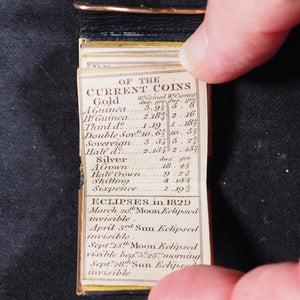 OF THE
CURRENT COINS
Gold Wt. Coined Wt. Current
dwt grs dwt grs
A Guinea 5 . 9½ 5 . 8
Half Guinea 2 . 16
Third do. 1 . 19 1 . 18
Double Sov.
Sovereign 5 . 3¼
Half do. 2 .
Silver dwt grs
A Crown 18 . 4
Half Crown 9 . 2
Shilling 3 . 15
Sixpence 1 . 19
ECLIPSES, in 1829
March 20th Moon Eclipsed
invisible.
April 3rd Sun Eclipsed
invisible.
Sept. 13th Moon Eclipsed
visible beg. morning
Sept. 28th Sun Eclipsed
invisible.